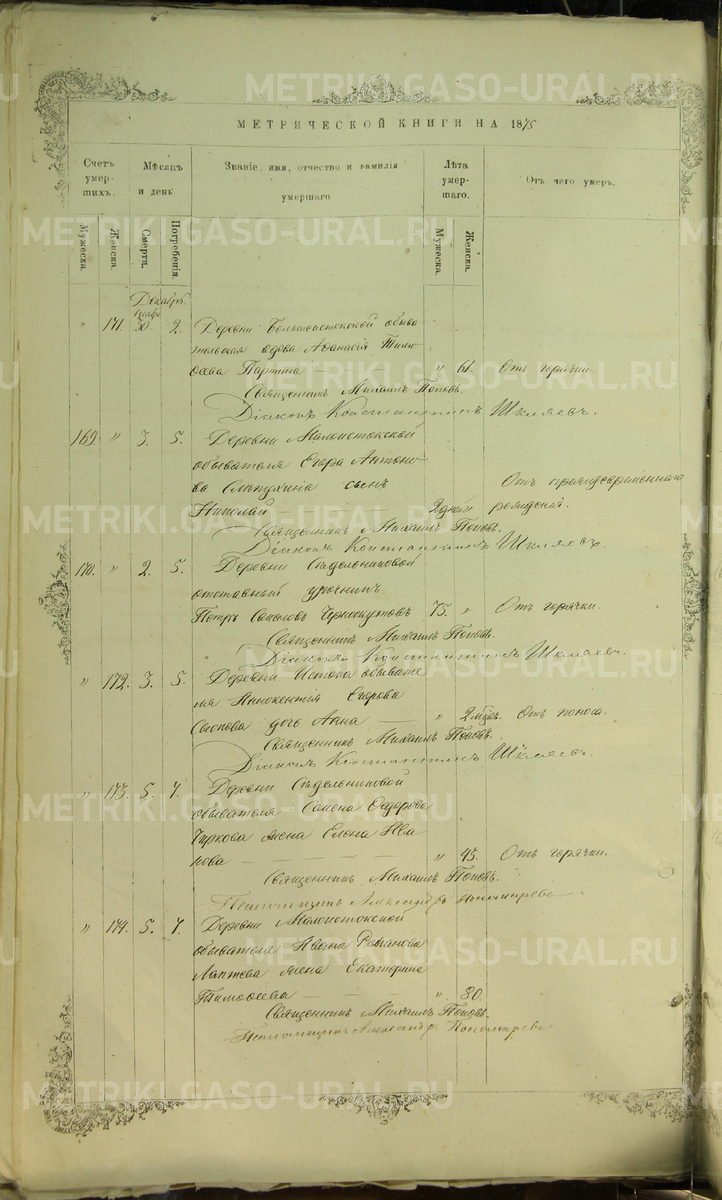 МЕТРИЧЕСКОЙ КНИГИ НА 1875
Счетъ умер-шихъ. Мѣсяцъ и день Званіе, имя, отчество и фамилія умершаго Лѣта умер-шаго. Отъ чего умеръ.
Мужеска. Женска. Смерти. Погребенія. Мужеска. Женска.
Декабрь
Нояб.
" 171. 30 2. Деревни Большеистокской обыва-
тельская вдова Афанасія Тимо
Паршина — " 61. Отъ горячки.
Священникъ Михаилъ Поповъ.
Діаконъ Константинъ Шкляевъ.
169. " 3. 5. Деревни Малоистокской
обывателя Егора Антоно-
ва сынъ Отъ преждевременнаго
Николай 2 дней рожденія.
Священникъ Михаилъ Поповъ.
Діаконъ Константинъ Шкляевъ.
170. " 2. 5. Деревни Сѣдельниковой
отставный урочникъ
Петръ Семеновъ Черноскутовъ 75. " Отъ горячки.
Священникъ Михаилъ Поповъ.
Діаконъ Константинъ Шкляевъ.
" 172. 3. 5. Деревни Истока обывате-
ля Иннокентія Егорова
дочь Анна — " 2 мѣсц. Отъ поноса.
Священникъ Михаилъ Поповъ.
Діаконъ Константинъ Шкляевъ.
" 173. 5. 7. Деревни Сѣдельниковой
обывателя Семена Федорова
Чиркова жена Елена Ива
нова — — — — " 45. Отъ горячки.
Священникъ Михаилъ Поповъ.
Псаломщикъ Александръ Пономаревъ
" 174. 5. 7. Деревни Малоистокской
обывателя Ивана Романова
Лаптева жена Екатерина
Тимофеева — — " 80.
Священникъ Михаилъ Поповъ.
Псаломщикъ Александръ Пономаревъ
METRIKI.GASO-URAL.RU